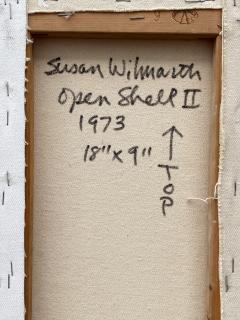 Susan Wilmarth
Open Shell II
1973
18" x 9"
↑ TOP